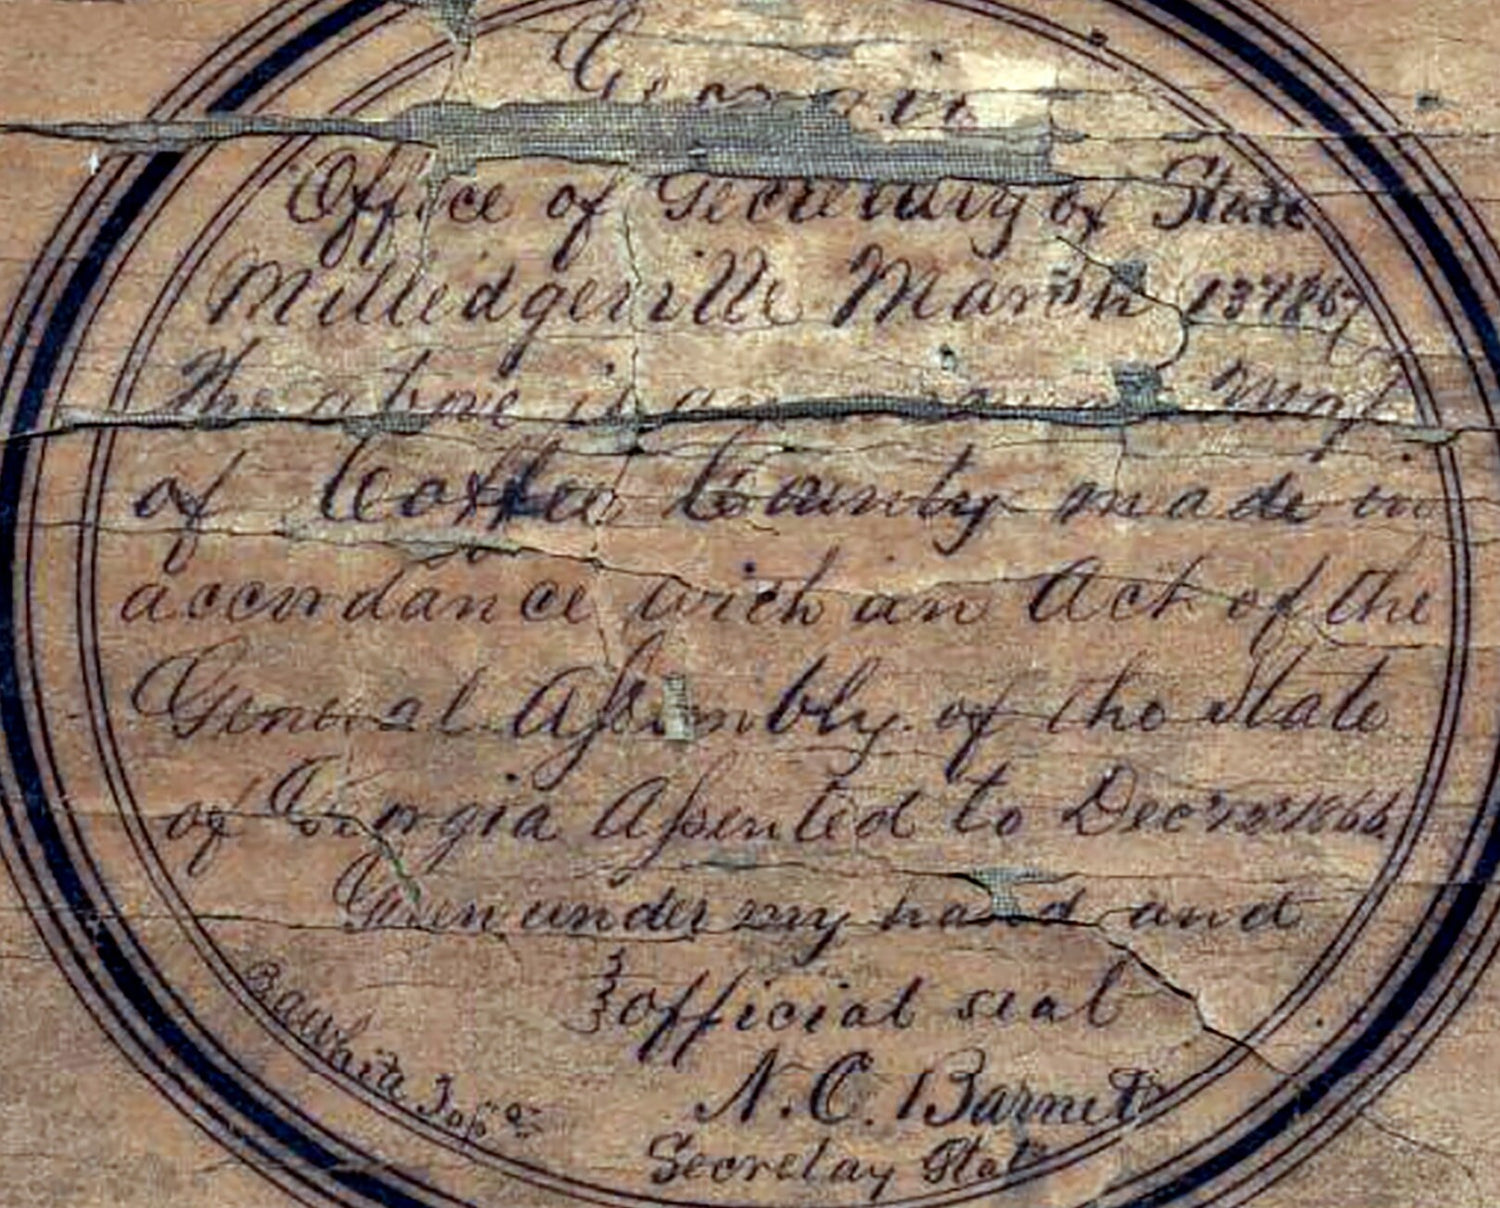 Georgia
Office of Secretary of State
Milledgeville March 13 1867
The above is a Map
of Coffee County made in
accordance with an Act of the
General Assembly of the State
of Georgia Assented to Decr 1866
Given under my hand and
official seal
N. C. Barnett
Secretay State
White